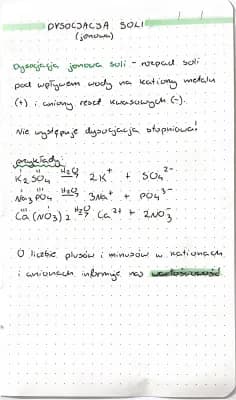 DYSOCJACJA SOLI
(jonowa)
Dysocjacja jonowa soli - rozpad soli
pod wpływem wody na kationy metalu
(+) i aniony reszt kwasowych (-).
Nie występuje dysocjacja stopniowa!
przykłady:
K₂SO₄ →H₂O 2K⁺ + SO₄²⁻
Na₃PO₄ →H₂O 3Na⁺ + PO₄³⁻
Ca(NO₃)₂ →H₂O Ca²⁺ + 2NO₃⁻
O liczbie plusów i minusów w kationach
i anionach informuje nas wartościowość